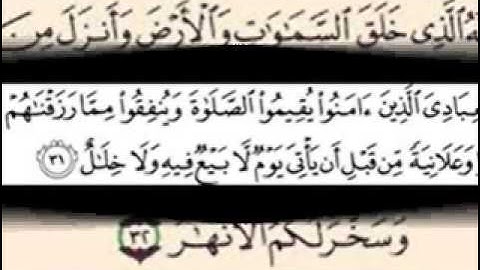 ٱلَّذِى خَلَقَ ٱلسَّمَٰوَٰتِ وَٱلْأَرْضَ وَأَنزَلَ مِنَ
ٱلَّذِينَ ءَامَنُوا۟ يُقِيمُوا۟ ٱلصَّلَوٰةَ وَيُنفِقُوا۟ مِمَّا رَزَقْنَٰهُمْ
وَعَلَانِيَةً مِّن قَبْلِ أَن يَأْتِىَ يَوْمٌ لَّا بَيْعٌ فِيهِ وَلَا خِلَٰلٌ ٣١
وَسَخَّرَ لَكُمُ ٱلْأَنْهَٰرَ ٣٢